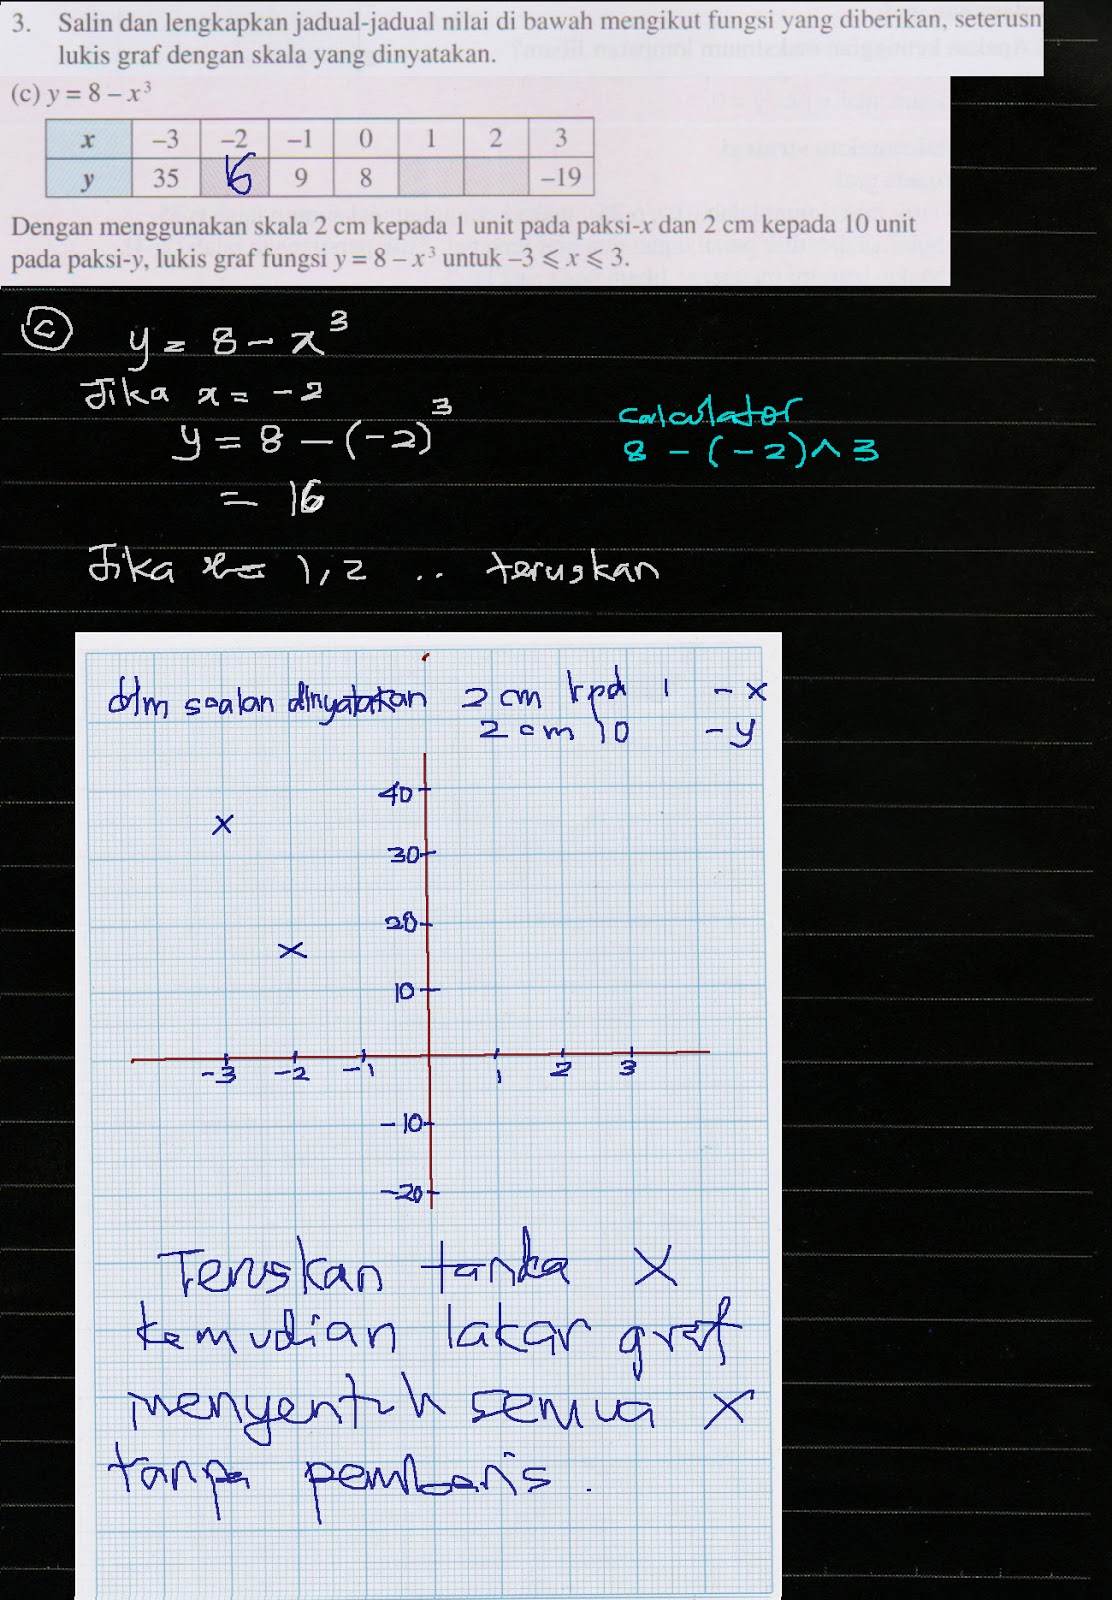 3. Salin dan lengkapkan jadual-jadual nilai di bawah mengikut fungsi yang diberikan, seterusn
lukis graf dengan skala yang dinyatakan.
(c) y = 8 – x³
x –3 –2 –1 0 1 2 3
y 35 16 9 8 –19
Dengan menggunakan skala 2 cm kepada 1 unit pada paksi-x dan 2 cm kepada 10 unit
pada paksi-y, lukis graf fungsi y = 8 – x³ untuk –3 ⩽ x ⩽ 3.
c y = 8 - x³
Jika x = -2
y = 8 - (-2)³
= 16
calculator
8 - (-2)^3
Jika x = 1, 2 .. teruskan
dlm soalan dinyatakan 2 cm kpd 1 - x
2 cm 10 - y
40
x
30
20
x
10
-3 -2 -1 1 2 3
-10
-20
Teruskan tanda X
kemudian lakar graf
menyentuh semua X
tanpa pembaris.